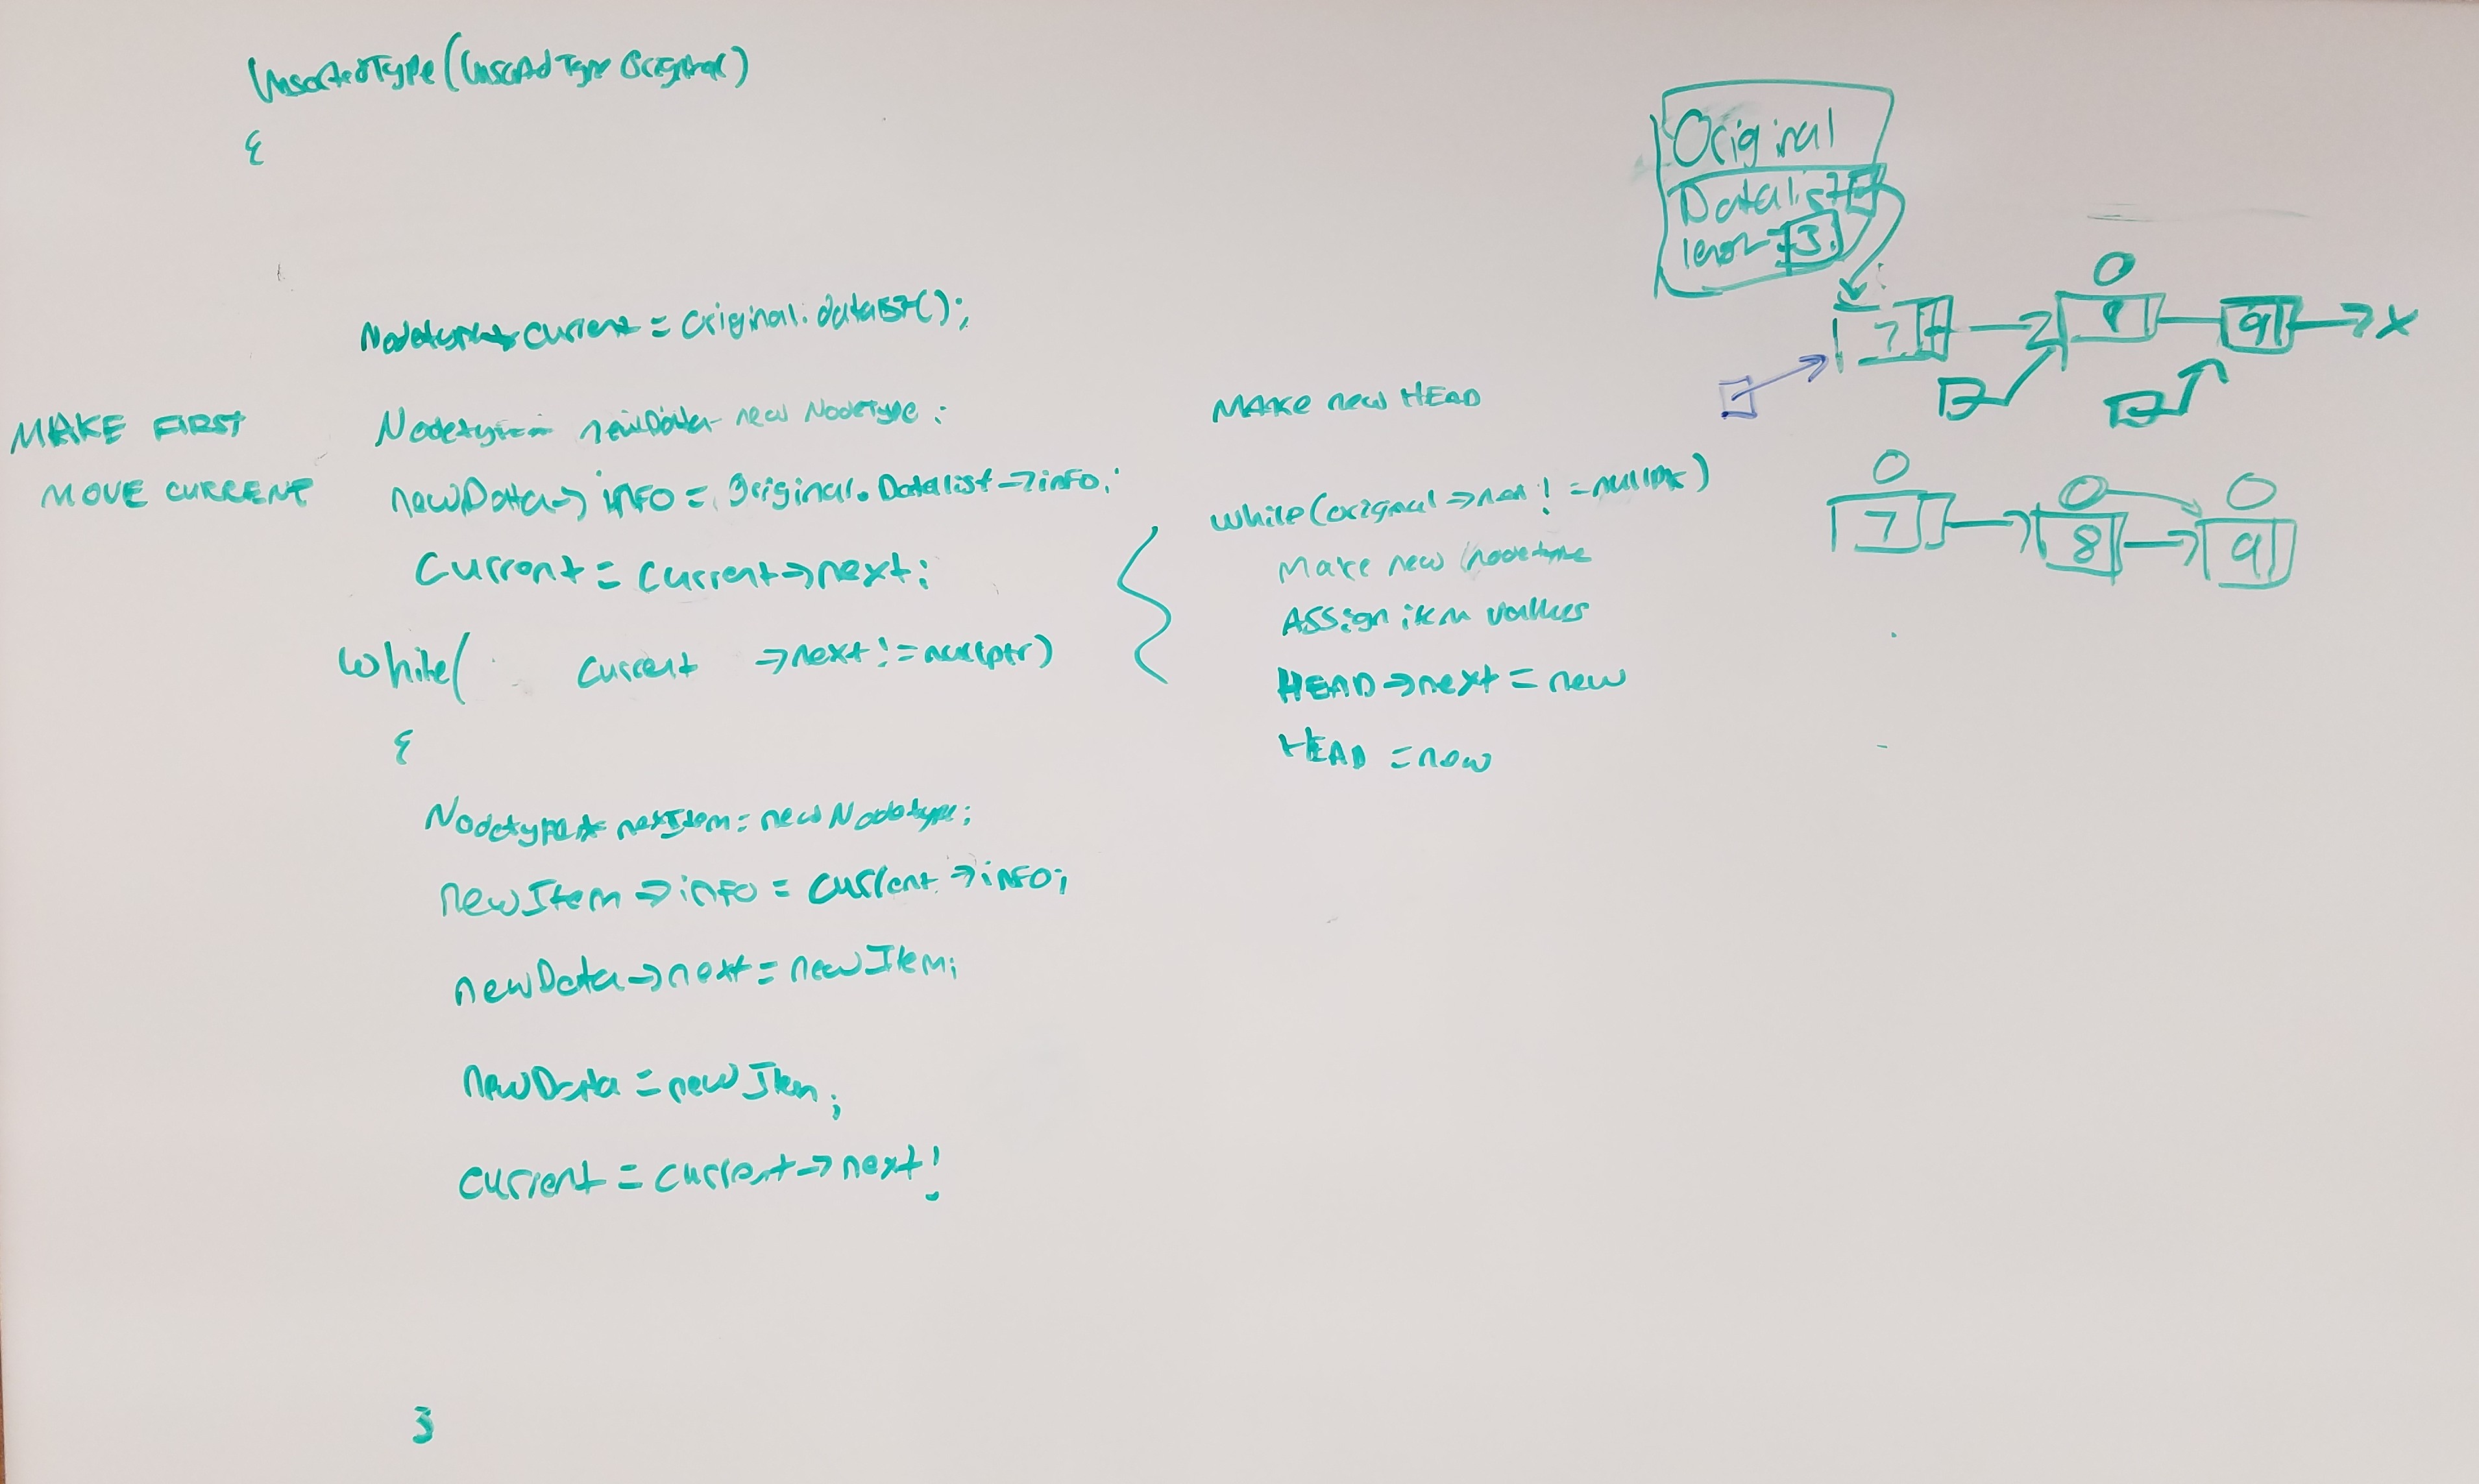 UnsortedType(UnsortedType Original)
{
Nodetype* current = original.datalist();
MAKE FIRST
MOVE CURRENT
Nodetype* newData = new NodeType;
newData->info = Original.Datalist->info;
Current = Current->next;
while( current ->next != nullptr)
{
Nodetype* newItem = new Nodetype;
newItem->info = current->info;
newData->next = newItem;
newData = newItem;
current = current->next;
}
MAKE new HEAD
while(original->next != nullptr)
Make new nodetype
Assign item values
HEAD->next = new
HEAD = new
Original
Datalist
3
7
9
X
7
8
9